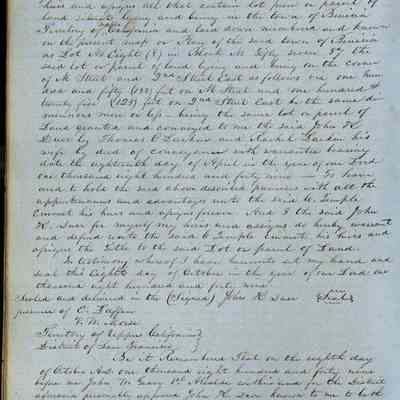 heirs and assigns all that certain lot piece or parcel of
Land situate lying and being in the town of Benicia
Territory of California and laid down numbered and known
on the present map or Plan of the said town of Benicia
as Lot No Eight (8) Block No Fifty seven 57 the
said lot or parcel of land lying and being on the corner
of M Street and 2nd Street East as follows viz one hun
dred and fifty (150) feet on M Street and one hundred &
twenty five (125) feet on 2nd Street East be the same di
mensions more or less being the same lot or parcel of
Land granted and conveyed to me the said John K
by Thomas O Larkin and Rachel Larkin his
wife by deed of Conveyance with warrantee bearing
date the eighteenth day of April in the year of our Lord
one thousand eight hundred and forty nine — To have
and to hold the said above described premises with all the
appurtenances and advantages unto the said C. Temple
Emmet his heirs and assigns forever. And I the said John
K. for myself my heirs and assigns do hereby warrant
and defend unto the said C Temple Emmet his heirs and
assigns the title to the said Lot or parcel of Land.
In testimony whereof I have hereunto set my hand and
seal this Eighth day of October in the year of our Lord one
thousand eight hundred and forty nine.
Sealed and delivered in the (Signed) John K Seal
presence of C.
F. M.
Territory of Upper California
District of San Francisco
Be it Remembered that on the eighth day
of October A.D. one thousand eight hundred and forty nine
before me John W. Geary 1st Alcalde in and for the District
aforesaid personally appeared John K known to me to both